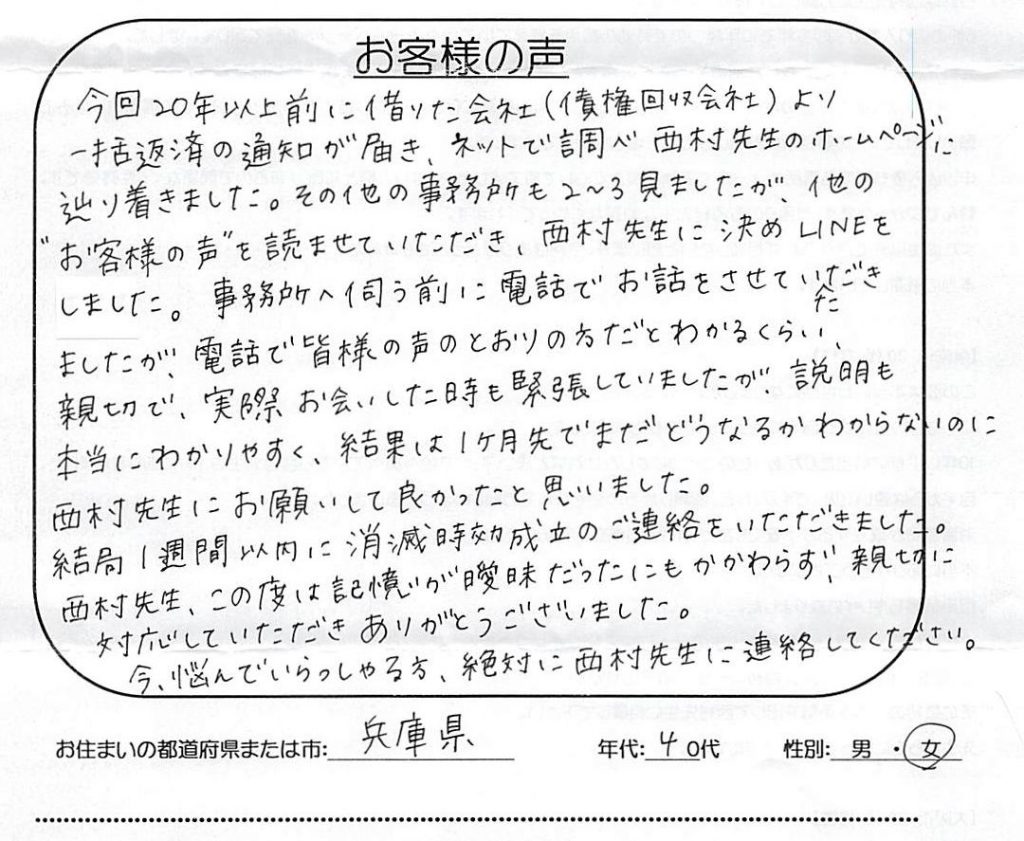 お客様の声
今回20年以上前に借りた会社(債権回収会社)より
一括返済の通知が届き、ネットで調べ西村先生のホームページに
辿り着きました。その他の事務所も2~3見ましたが、他の
"お客様の声"を読ませていただき 西村先生に決めLINEを
しました。事務所へ伺う前に電話でお話をさせていただき
ましたが、電話で皆様の声のとおりの方だとわかるくらい、
親切で、実際お会いした時も緊張していましたが 説明も
本当にわかりやすく、結果は1ヶ月先でまだどうなるかわからないのに
西村先生にお願いして良かったと思いました。
結局1週間以内に消滅時効成立のご連絡をいただだきました。
西村先生、この度は記憶が曖昧だったにもかかわらず、親切に
対応していただきありがとうございました。
今、悩んでいらっしゃる方、絶対に西村先生に連絡してください。
お住まいの都道府県または市: 兵庫県 年代: 40代 性別: 男・女